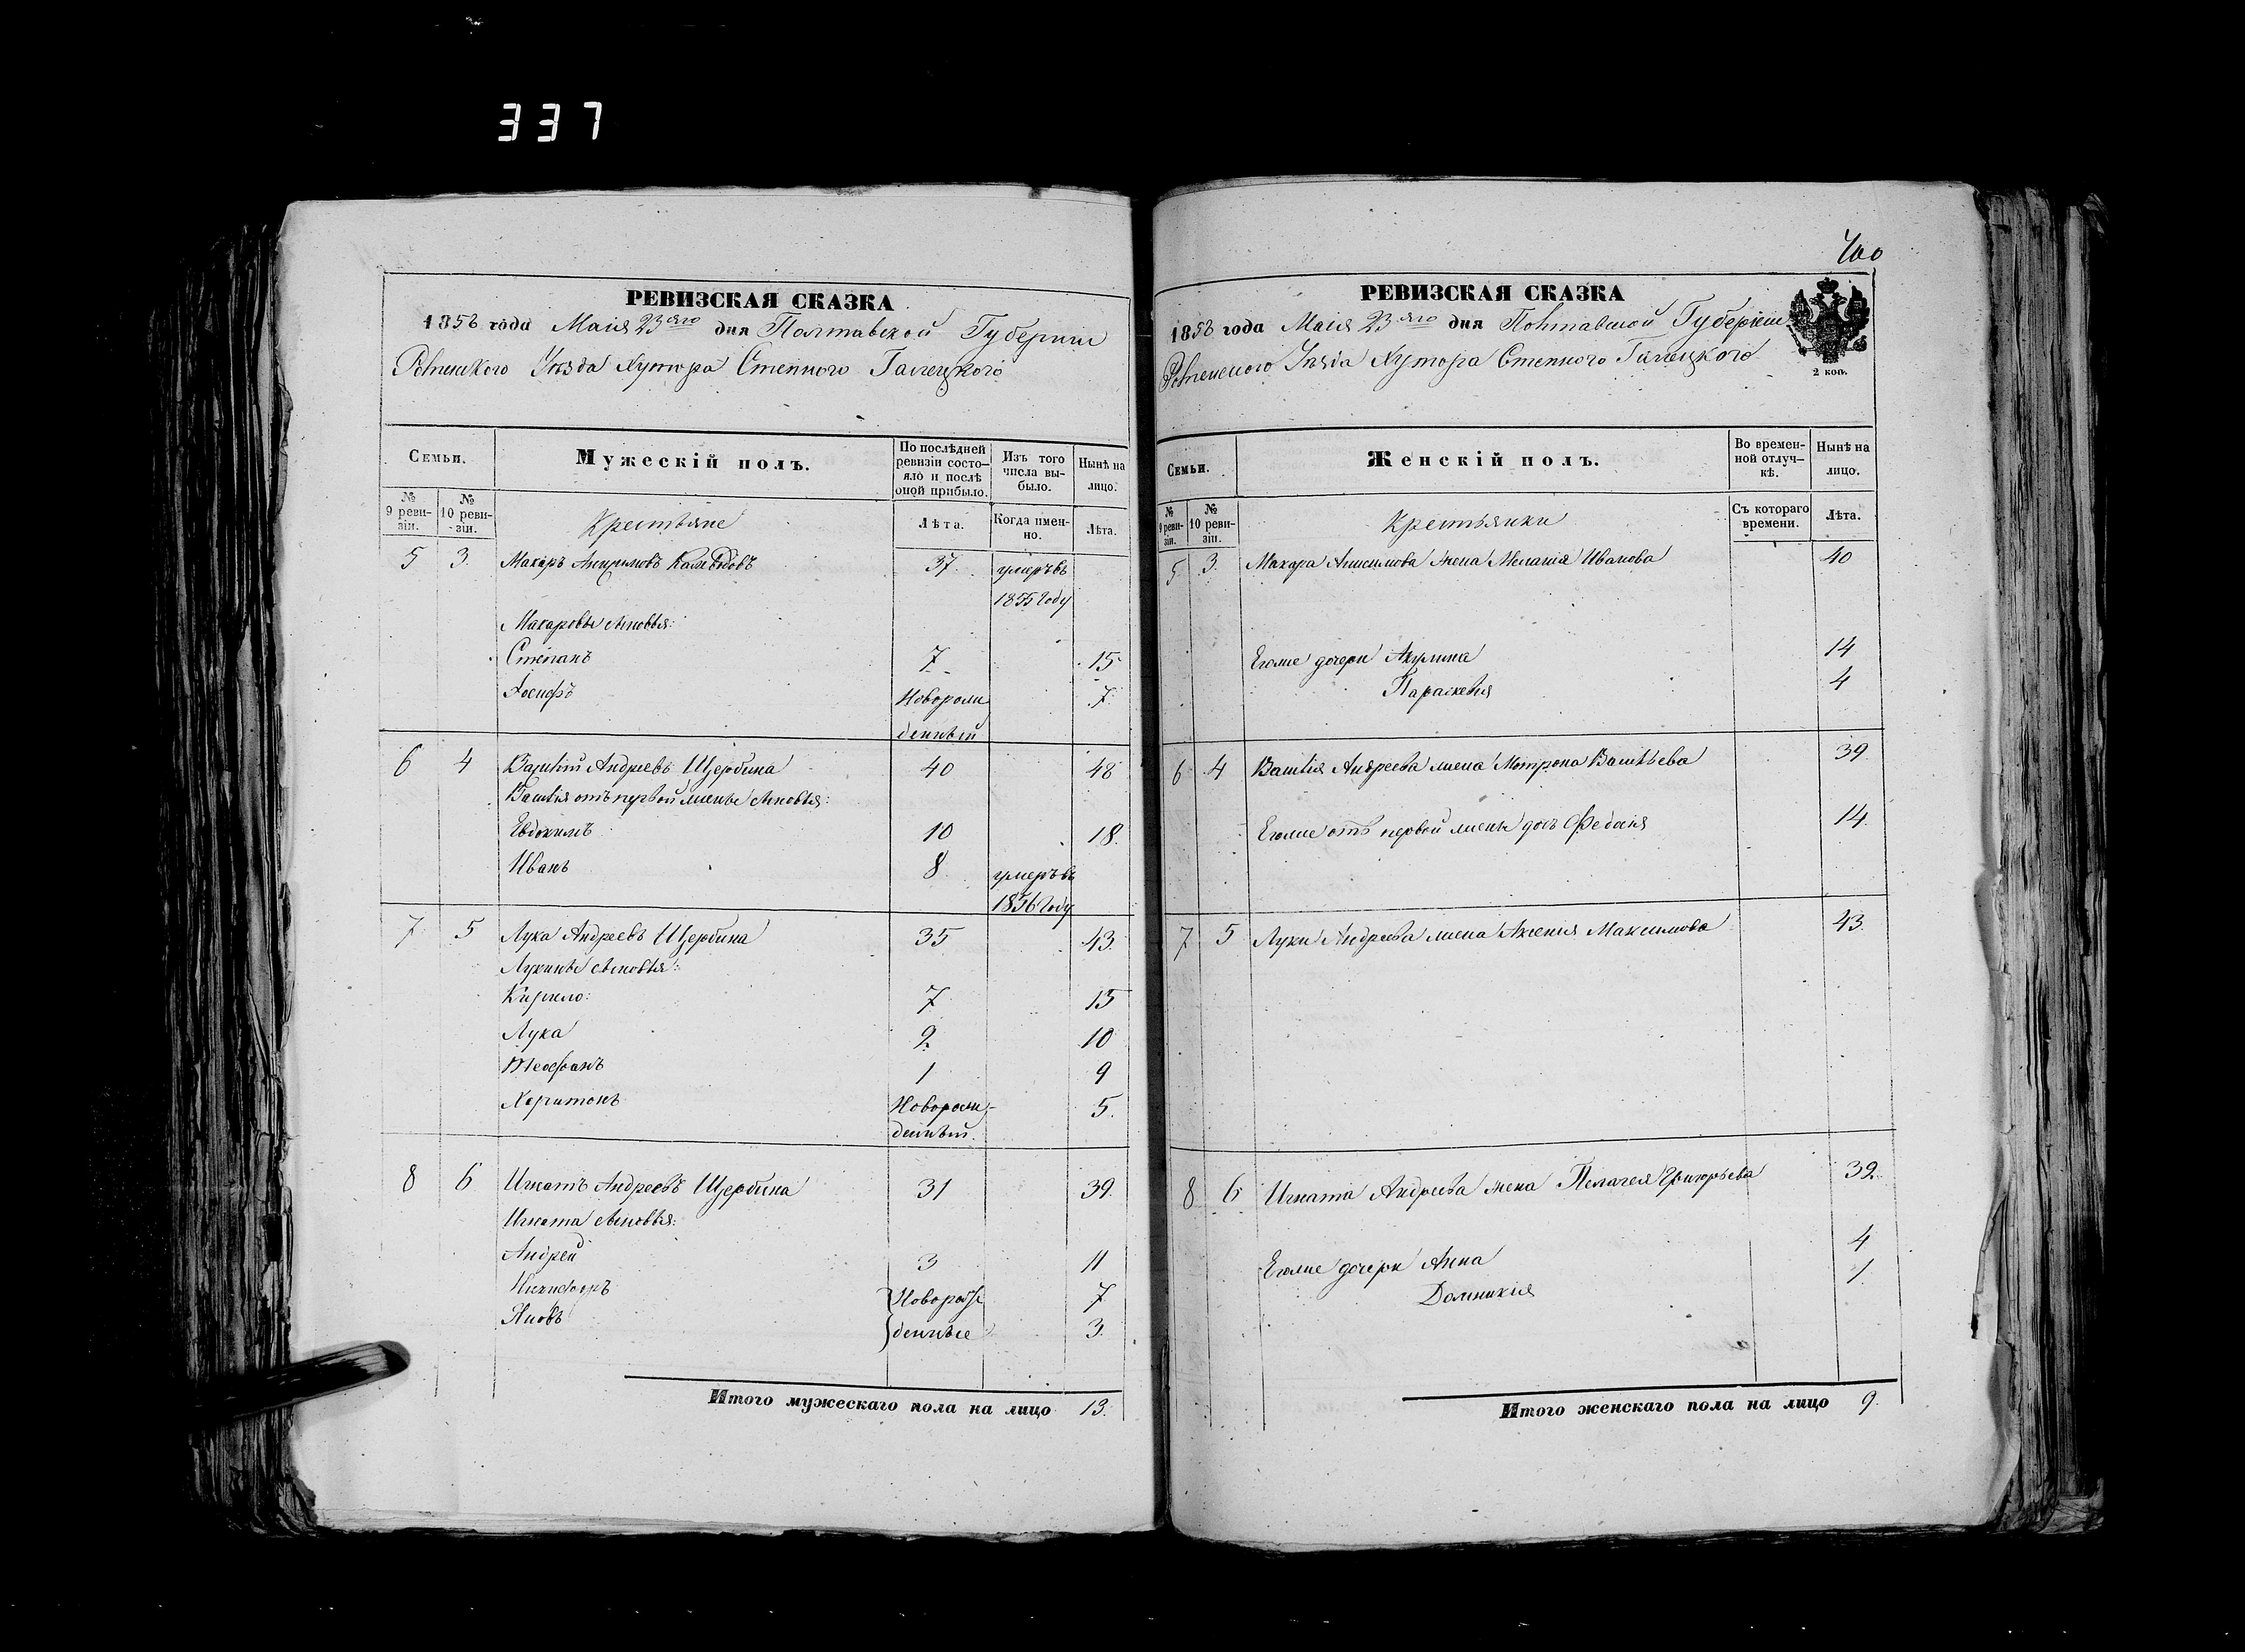 337
РЕВИЗСКАЯ СКАЗКА
1858 года Маія 23 дня Полтавской Губерніи
Роменского Уѣзда Хутора Степного Галецкого
Семьи.
Мужескій полъ.
По послѣдней ревизіи состояло и послѣ оной прибыло.
Изъ того числа выбыло.
Нынѣ на лицо.
№ 9 ревизіи.
№ 10 ревизіи.
Крестьяне
Лѣта.
Когда именно.
Лѣта.
5 3. Макаръ 37. умеръ въ
1855 Году
Макаровы сыновья:
Степанъ 7 15
Іосифъ Новорож 7.
денный
6 4 Василій Андреевъ Щербина 40 48
Василія отъ первой жены сыновья:
Евдокимъ 10 18.
Иванъ 8 умеръ въ
1856 Году
7 5 Лука Андреевъ Щербина 35 43.
Лукины сыновья:
Кирило: 7 15
Лука 2. 10
Теофанъ 1 9
Харитонъ Новорож- 5.
денный.
8 6 Игнатъ Андреевъ Щербина 31 39.
Игната сыновья:
Андрей 3 11
Никифоръ Новорож 7
Яковъ денные 3.
Итого мужескаго пола на лицо 13.
400
РЕВИЗСКАЯ СКАЗКА
1858 года Маія 23 дня Полтавской Губерніи
Роменского Уѣзда Хутора Степного Галецкого
2 коп.
Семьи.
Женскій полъ.
Во временной отлучкѣ.
Нынѣ на лицо.
№ 9 ревизіи.
№ 10 ревизіи.
Крестьянки
Съ котораго времени.
Лѣта.
5 3. Макара Анисимова жена Меланія Иванова 40
Егоже дочери Акулина 14
Параскевія 4
6 4 Василія Андреева жена Мотрона Васильева 39.
Егоже отъ первой жены дочь Федосія 14.
7 5 Луки Андреева жена Аксенія Максимова 43.
8 6 Игната Андреева жена Пелагея Григорьева 39.
Егоже дочери Анна 4
Домникія 1.
Итого женскаго пола на лицо 9.